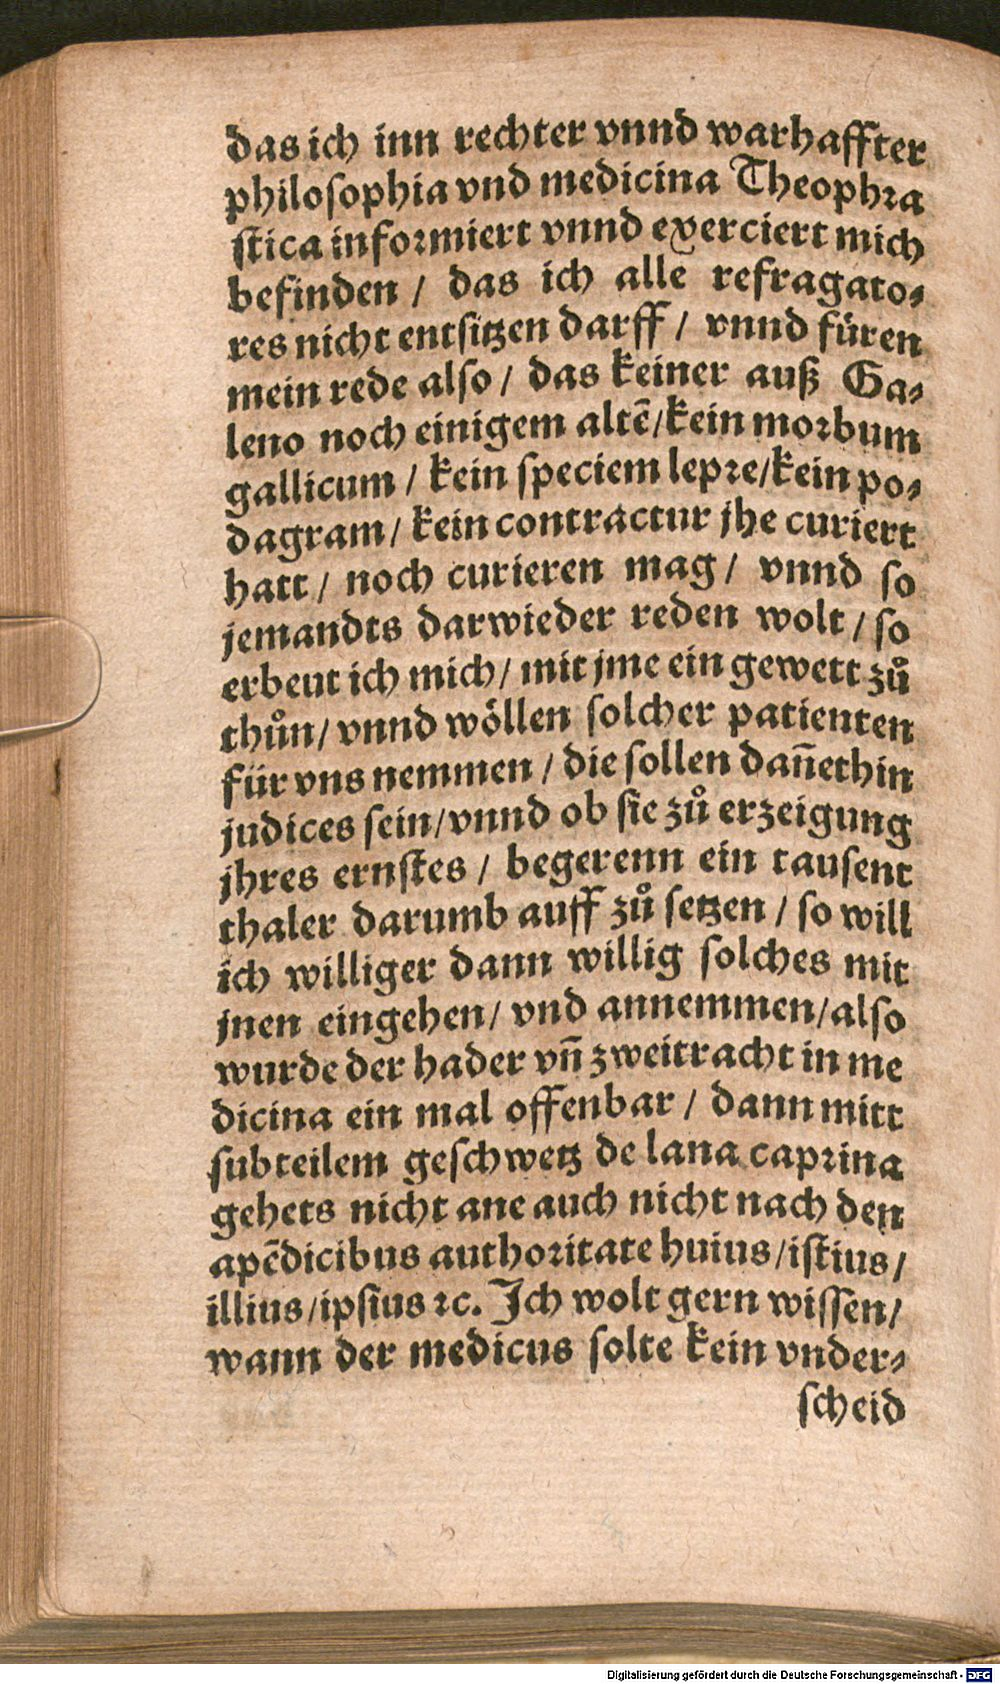 das ich inn rechter vnnd warhaffter
philosophia vnd medicina Theophra
stica informiert vnnd exerciert mich
befinden / das ich alle refragato⸗
res nicht entsitzen darff / vnnd füren
mein rede also / das keiner auß Ga⸗
leno noch einigem altē/kein morbum
gallicum / kein speciem lepre/kein po⸗
dagram/ kein contractur jhe curiert
hatt / noch curieren mag / vnnd so
jemandts darwieder reden wolt / so
erbeut ich mich/ mit jme ein gewett zů
thůn/ vnnd wöllen solcher patienten
für vns nemmen / die sollen dañethin
judices sein/vnnd ob sie zů erzeigung
jhres ernstes / begerenn ein tausent
thaler darumb auff zů setzen / so will
ich williger dann willig solches mit
jnen eingehen/ vnd annemmen/also
wurde der hader vñ zweitracht in me
dicina ein mal offenbar / dann mitt
subteilem geschwetz de lana caprina
gehets nicht ane auch nicht nach den
apēdicibus authoritate huius/istius/
illius/ipsius ꝛc. Ich wolt gern wissen/
wann der medicus solte kein vnder⸗
scheid
Digitalisierung gefördert durch die Deutsche Forschungsgemeinschaft - DFG